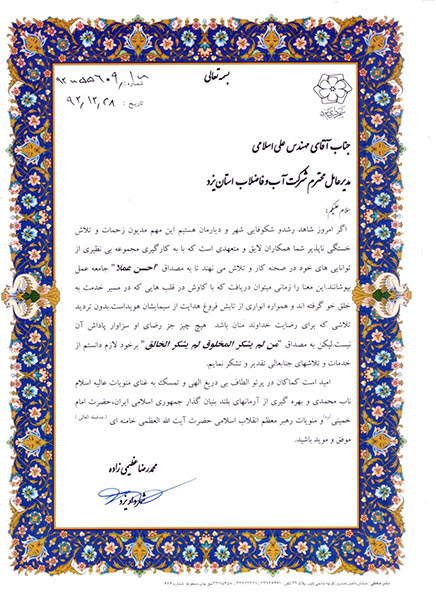 بسمه تعالی
شماره:
تاریخ: ۹۲,۱۲,۲۸
جناب آقای مهندس علی اسلامی
مدیرعامل محترم شرکت آب و فاضلاب استان یزد
سلام علیکم؛
اگر امروز شاهد رشدو شکوفایی شهر و دیارمان هستیم این مهم مدیون زحمات و تلاش
خستگی ناپذیر شما همکاران لایق و متعهدی است که با به کارگیری مجموعه بی نظیری از
توانایی های خود در صحنه کار و تلاش می نهند تا به مصداق "احسن عملا" جامعه عمل
بپوشانند.این معنا را زمانی میتوان دریافت که با کاوش در قلب هایی که در مسیر خدمت به
خلق خو گرفته اند و همواره انواری از تابش فروغ هدایت از سیمایشان هویداست.بدون تردید
تلاشی که برای رضایت خداوند منان باشد هیچ چیز جز رضای او سزاوار پاداش آن
نیست.لیکن به مصداق "من لم یشکر المخلوق لم یشکر الخالق" برخود لازم دانستم از
خدمات و تلاشهای جنابعالی تقدیر و تشکر نمایم.
امید است کماکان در پرتو الطاف بی دریغ الهی و تمسک به غنای منویات عالیه اسلام
ناب محمدی و بهره گیری از آرمانهای بلند بنیان گذار جمهوری اسلامی ایران،حضرت امام
خمینی (ره) و منویات رهبر معظم انقلاب اسلامی حضرت آیت الله العظمی خامنه ای (مدظله العالی)
موفق و موید باشید.
محمدرضا عظیمی زاده
شهردار یزد